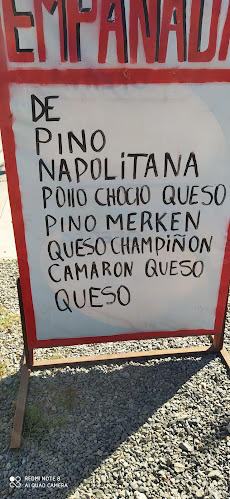 EMPANADA
DE
PINO
NAPOLITANA
POllO CHOClO QUESO
PINO MERKEN
QUESO CHAMPIÑON
CAMARON QUESO
QUESO
REDMI NOTE 8
AI QUAD CAMERA